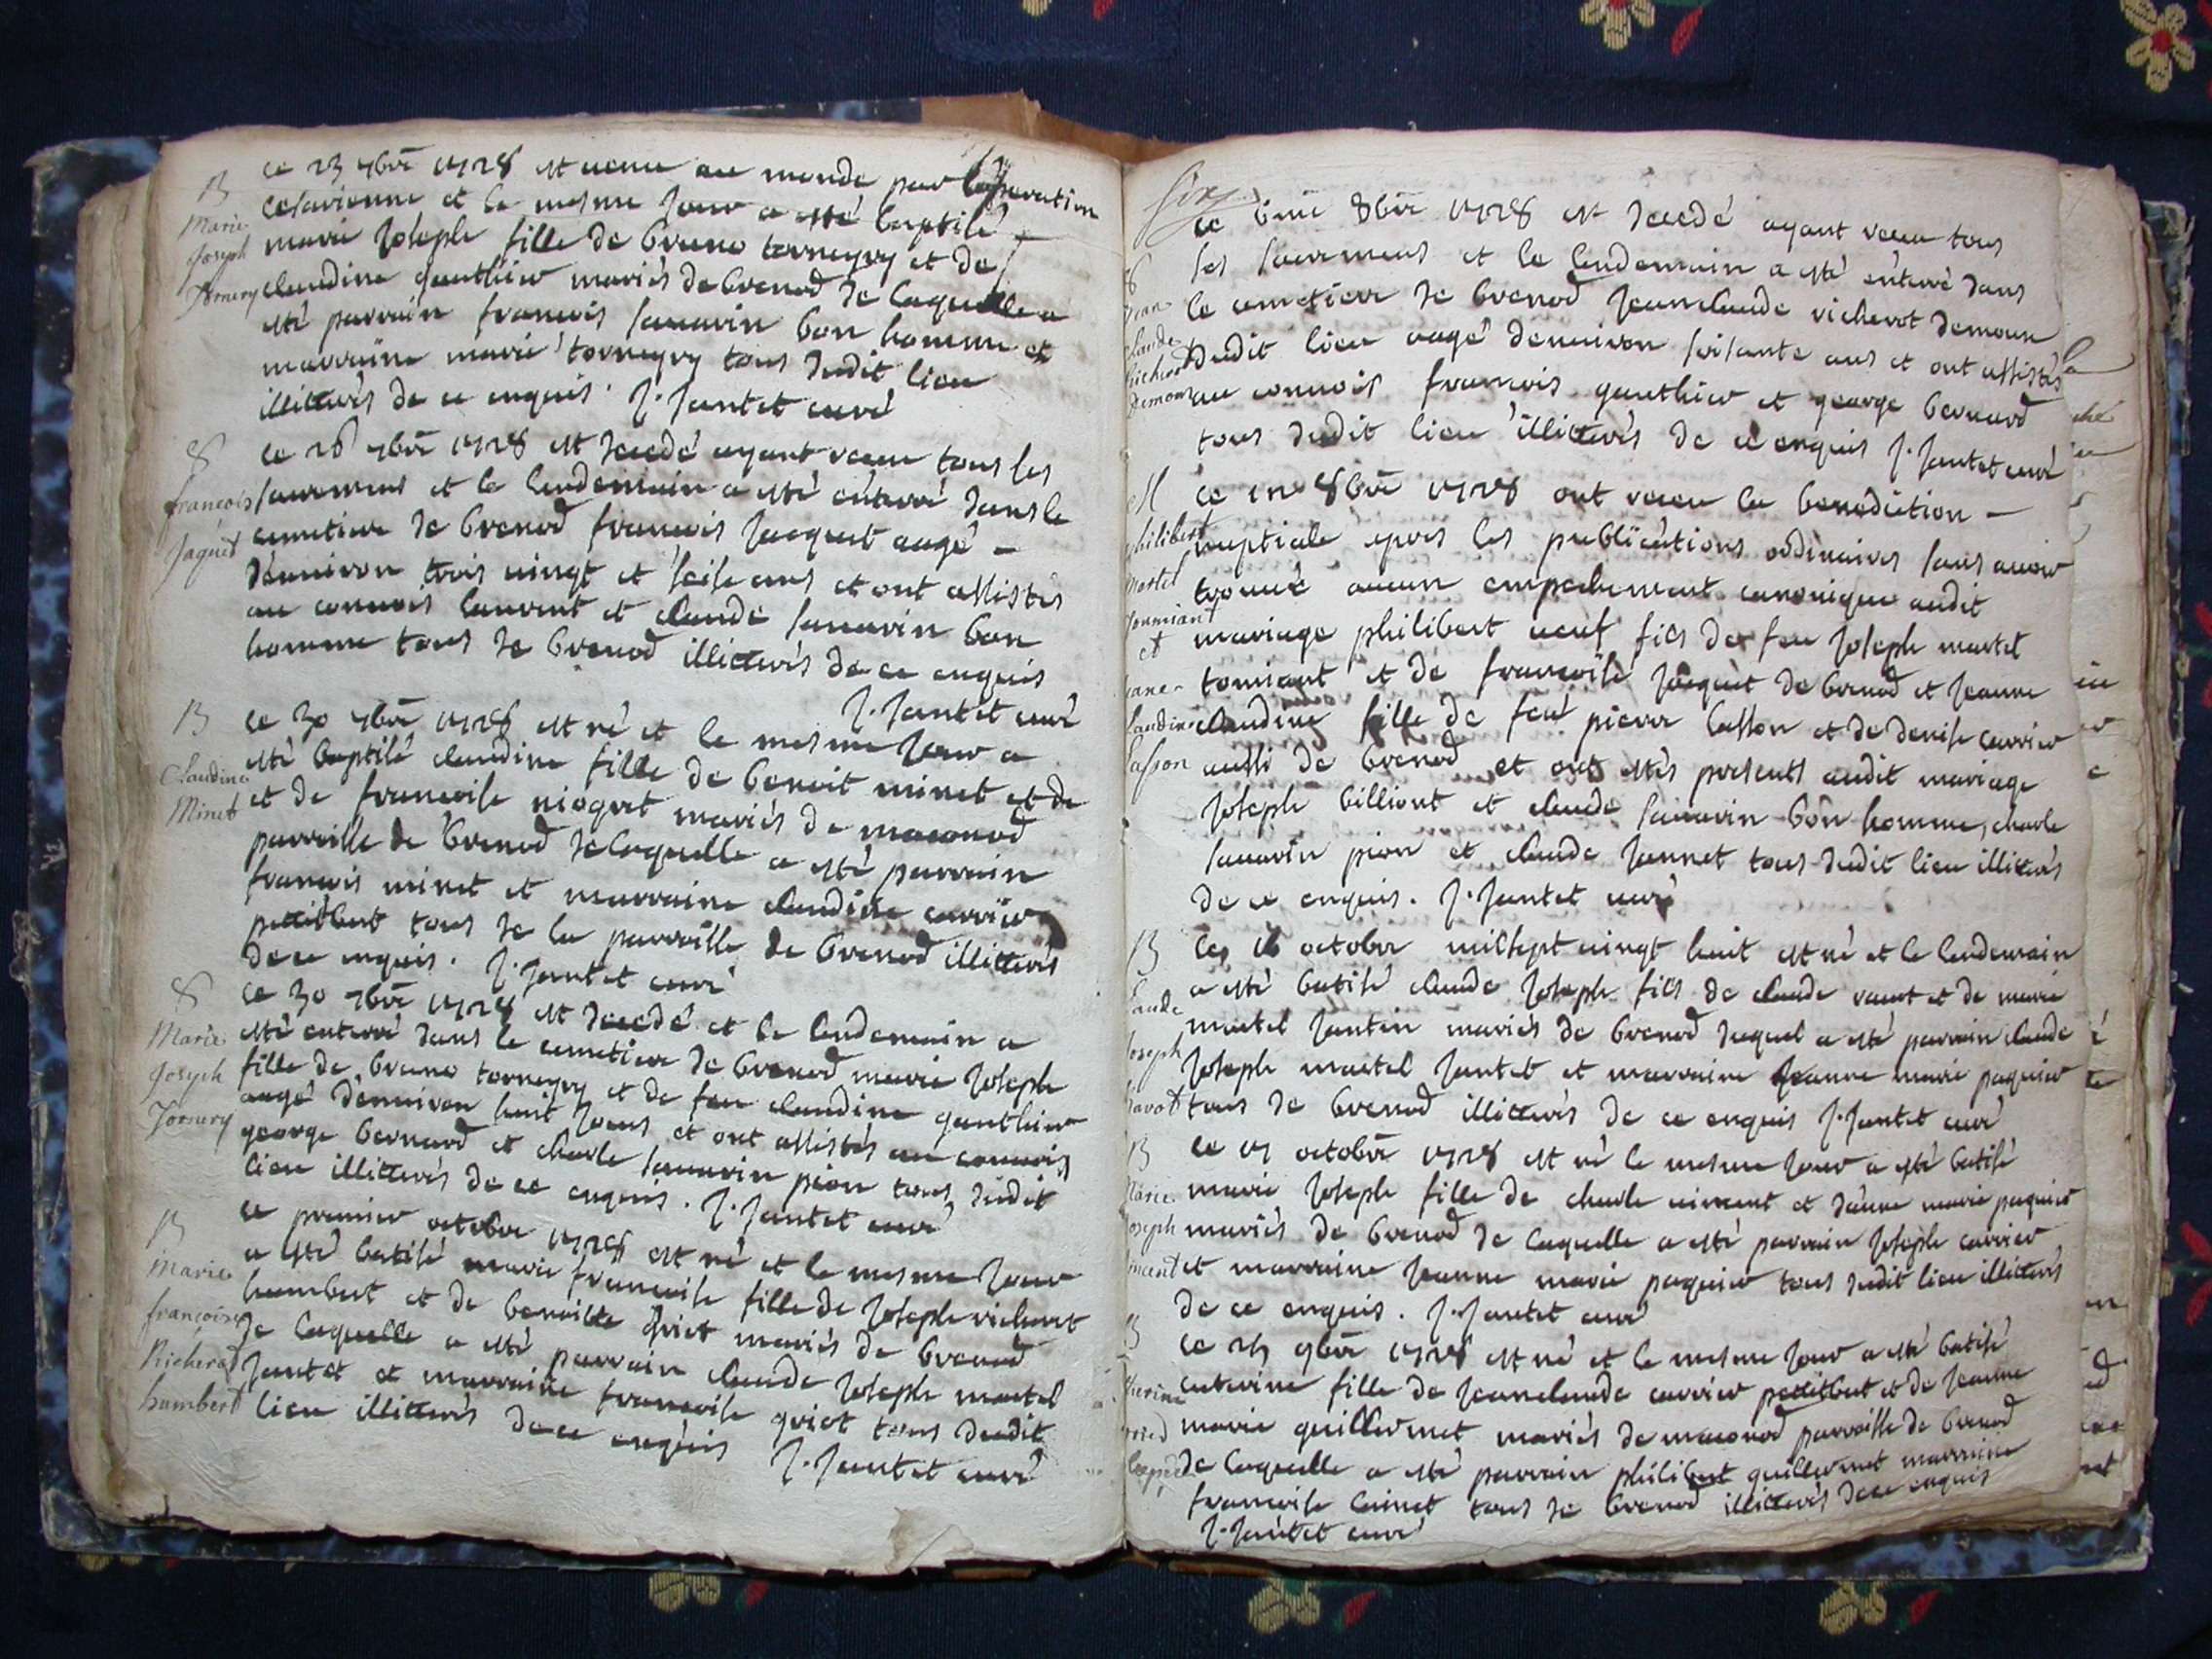 B
Marie
Joseph
Tornery
ce 23 7bre 1728 est venu au monde par l'operation
cesarienne et le mesme jour a esté baptisé
marie joseph fille de bruno torneyry et de
claudine gauthier mariés de brenod de laquelle a
esté parrain francois sauarin bon homme et
marraine marie torneyry tous dudit lieu
illitterés de ce enquis. J. Jantet curé
S
françois
Jaquet
ce 26 7bre 1728 est decedé ayant receu tous les
sacremens et le lendemain a esté enterré dans le
cemetiere de brenod francois jacquet aagé
d'enuiron trois vingt et seise ans et ont assistés
au conuois laurent et claude sauarin bon
homme tous de brenod illitterés de ce enquis
J. Jantet curé
B
Claudine
Minet
ce 30 7bre 1728 est né et le mesme jour a
esté baptisé claudine fille de benoit minet et de
et de francoise niogret mariés de maconod
parroisse de brenod de laquelle a esté parrain
francois minet et marraine claudine carrier
petitbert tous de la parroisse de brenod illitterés
de ce enquis. J. Jantet curé
S
Marie
Joseph
Tornery
ce 30 7bre 1728 est decedé et le lendemain a
esté enterré dans le cemetiere de brenod marie joseph
fille de bruno torneyry et de feu claudine gauthier
aagé d'enuiron huit jours et ont assistés au conuois
george bernard et charle sauarin pion tous dudit
lieu illitterés de ce enquis. J. Jantet curé
B
Marie
françoise
Richerod
humbert
ce premier octobre 1728 est né et le mesme jour
a esté batisé marie francoise fille de joseph richerot
humbert et de benoitte griot mariés de brenod
de laquelle a esté parrain claude joseph martel
jantet et marraine francoise griot tous dudit
lieu illitterés de ce enquis J. Jantet curé
S
claude
ce 6me 8bre 1728 est decedé ayant receu tous
les sacremens et le lendemain a esté enterré dans
le cemetiere de brenod jeanclaude richerot demoux
dudit lieu aagé denuiron soisante ans et ont assistés
au conuois francois gauthier et george bernard
tous dudit lieu illitterés de ce enquis J. Jantet curé
M
philibert
Martel
Toumiant
et
Claudine
Lasson
ce 12 8bre 1728 ont receu la benediction
nuptiale apres les publications ordinaires sans auoir
trouué aucun empechement canonique audit
mariage philibert ueuf fils de feu joseph martel
tomiant et de francoise jacquet de brenod et jeanne
claudine fille de feu pierre lasson et de denise carrier
aussi de brenod et ont estés presents audit mariage
joseph billiont et claude sauarin bon homme, charle
sauarin pion et claude jannet tous dudit lieu illitterés
de ce enquis. J. Jantet curé
B
Claude
Joseph
ce 16 octobre milsept vingt huit est né et le lendemain
a esté batisé claude joseph fils de claude rauot et de marie
martel jantin mariés de brenod duquel a esté parrain claude
joseph martel jantet et marraine jeanne marie paquier
tous de brenod illitterés de ce enquis J. Jantet curé
B
Marie
Joseph
ce 17 octobre 1728 est né le mesme jour a esté batisé
marie joseph fille de charle vincent et d'anne marie paquier
mariés de brenod de laquelle a esté parrain joseph carrier
et marraine jeanne marie paquier tous dudit lieu illitterés
de ce enquis. J. Jantet curé
B
ce 9bre 1728 est né et le mesme jour a esté batisé
caterine fille de jeanclaude carrier petitbert et de jeanne
marie guillermet mariés de maconod parroisse de brenod
de laquelle a esté parrain philibert guillermet marraine
francoise tous de brenod illitterés de ce enquis
J. Jantet curé